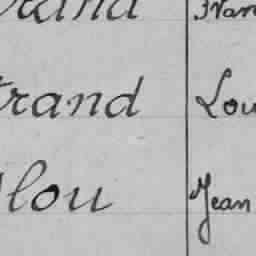 rand Fran
trand Lou
lou Jean